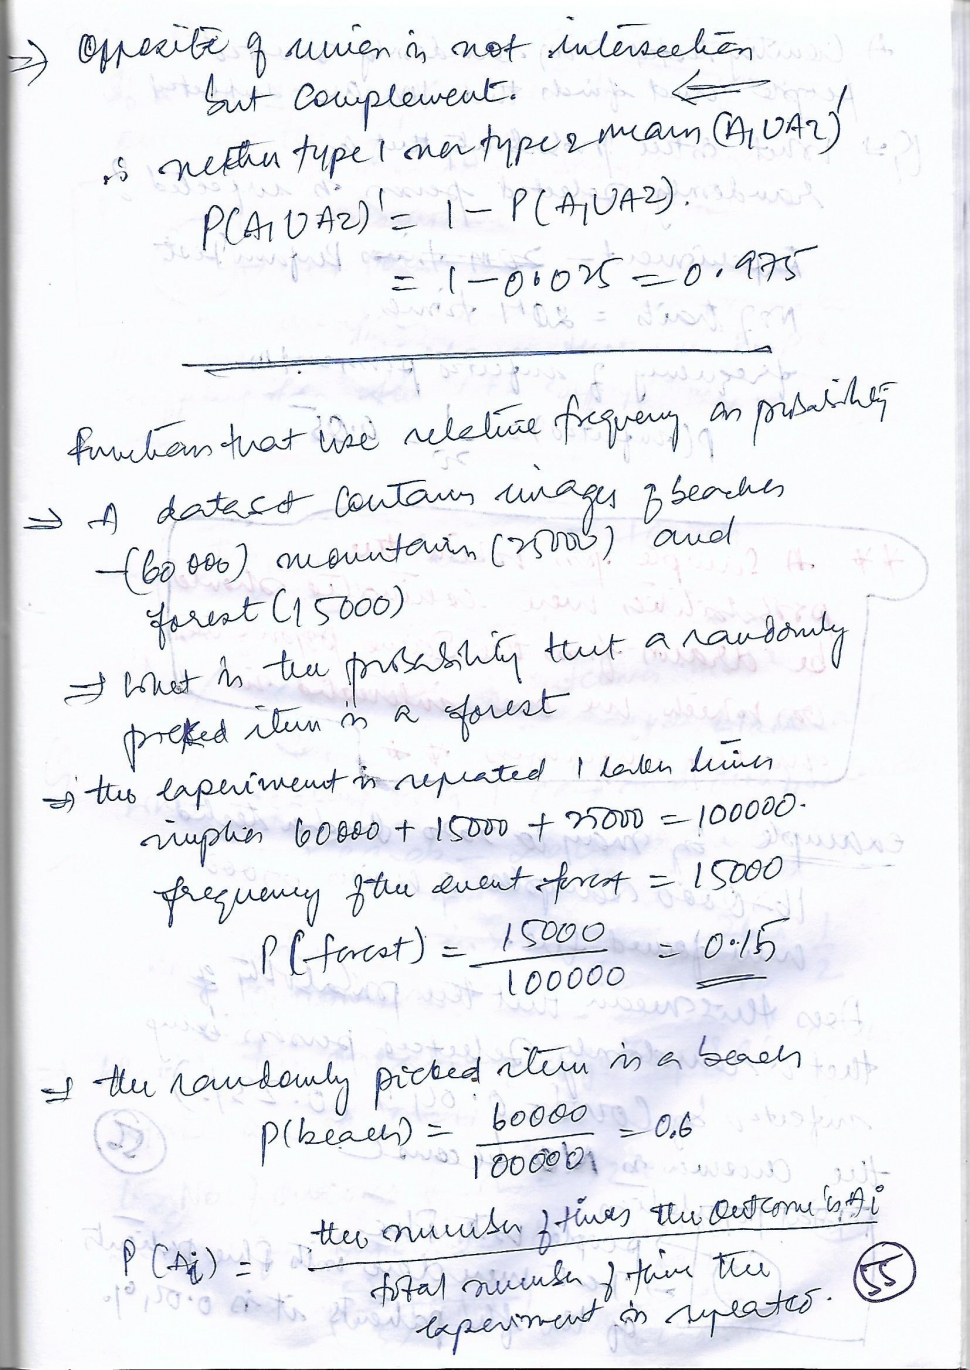 ⇒ Opposite of union is not intersection
but complement. ⇐
is neither type 1 nor type 2 means (A1 ∪ A2)'
P(A1 ∪ A2)' = 1 - P(A1 ∪ A2).
= 1 - 0.025 = 0.975
functions that use relative frequency as probability
⇒ A dataset contains images of beaches
(60000) mountains (25000) and
forest (15000)
⇒ What is the probability that a randomly
picked item is a forest
⇒ the experiment is repeated 1 times
implies 60000 + 15000 + 25000 = 100000.
frequency of the event forest = 15000
P(forest) = 15000 / 100000 = 0.15
⇒ the randomly picked item is a beach
P(beach) = 60000 / 100000 = 0.6
P(Ai) = the number of times the outcome is Ai
total number of time the
experiment is repeated.
55